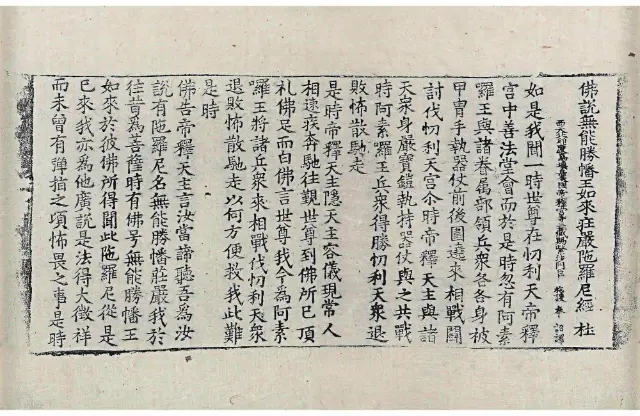 佛說無能勝幡王如來莊嚴陁羅尼經 杜
施護 奉 詔譯
如是我聞一時世尊在忉利天帝釋
宮中善法堂會而於是時忽有阿素
囉王與諸眷屬部領兵衆各各身被
甲胄手執器仗前後圍遶來相戰鬪
討伐忉利天宮尒時帝釋天主與諸
天衆身嚴寶鎧執持器仗與之共戰
時阿素囉王兵衆得勝忉利天衆退
敗怖散馳走
是時帝釋天主隱天主容儀現常人
相速疾奔馳往覲世尊到佛所已頂
礼佛足而白佛言世尊我今為阿素
囉王將諸兵衆來相戰伐忉利天衆
退敗怖散馳走以何方便救我此難
是時
佛告帝釋天主言汝當諦聽吾為汝
說有陁羅尼名無能勝幡莊嚴我於
往昔為菩薩時有佛号無能勝幡王
如來於彼佛所得聞此陁羅尼從是
已來我亦為他廣說是法得大徵祥
而未曾有彈指之頃怖畏之事是時